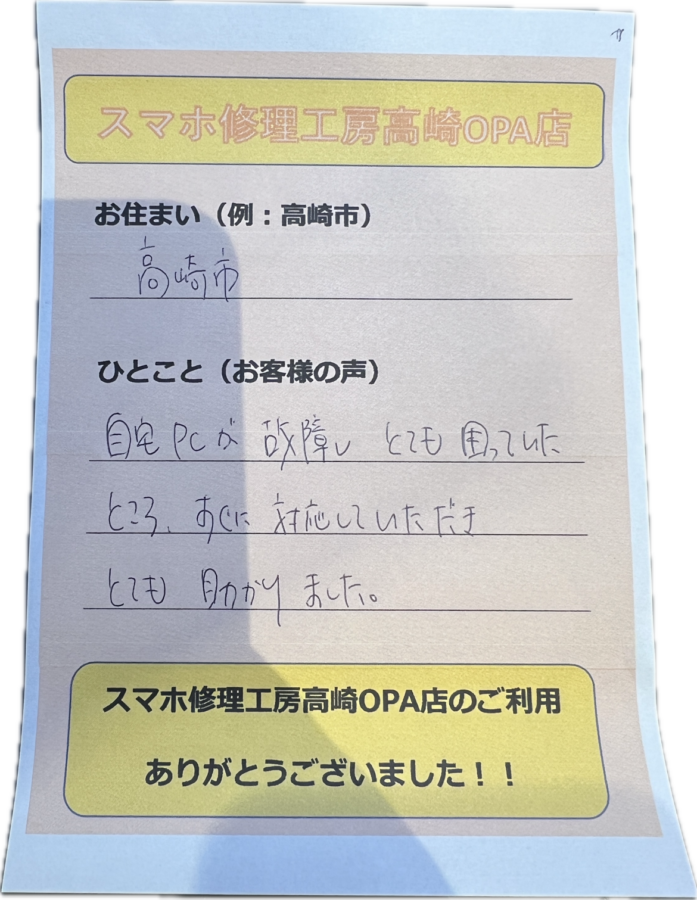 スマホ修理工房高崎OPA店
お住まい（例：高崎市）
高崎市
ひとこと（お客様の声）
自宅PCが故障し とても困っていた
ところ、すぐに対応していただき
とても助かりました。
スマホ修理工房高崎OPA店のご利用
ありがとうございました！！